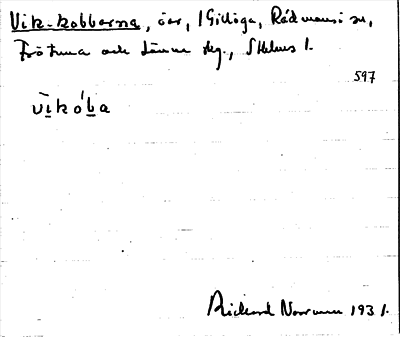 Vik-kobbarna, öar, i Gillöga, Rådmansö sn,
Frötuna och Länna skg., Sthlms l.
597
vīkóba
Rickard Norrman 1931.